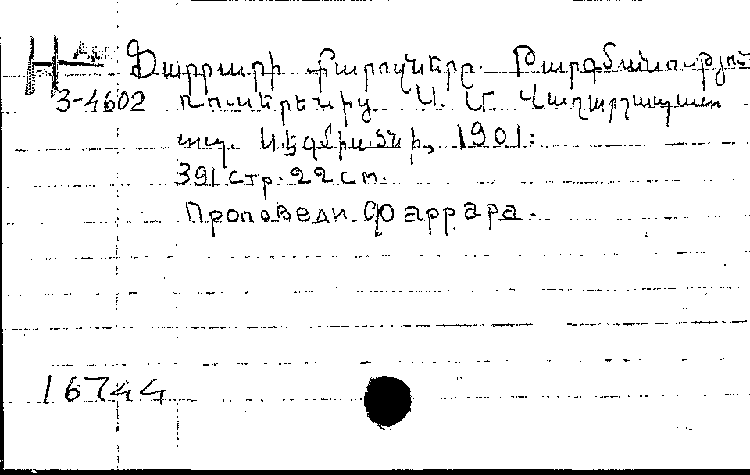 Н
Ֆարրարի քարոզները. Թարգմանություն
3-4602 ռուսերենից. Ս. Մ. Վաղարշապատ
տպ. Ս. Էջմիածնի, 1901:
391 стр. 22 см.
Проповеди Фаррара.
16744